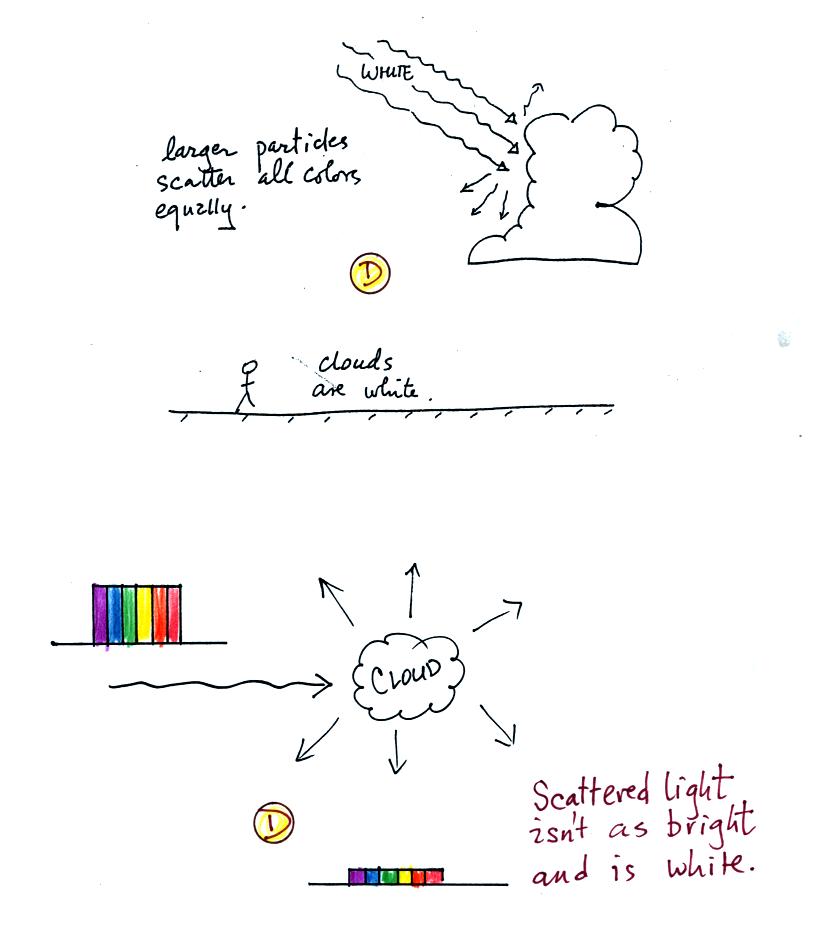 WHITE
larger particles
scatter all colors
equally.
D
clouds
are white.
CLOUD
D
Scattered light
isn't as bright
and is white.